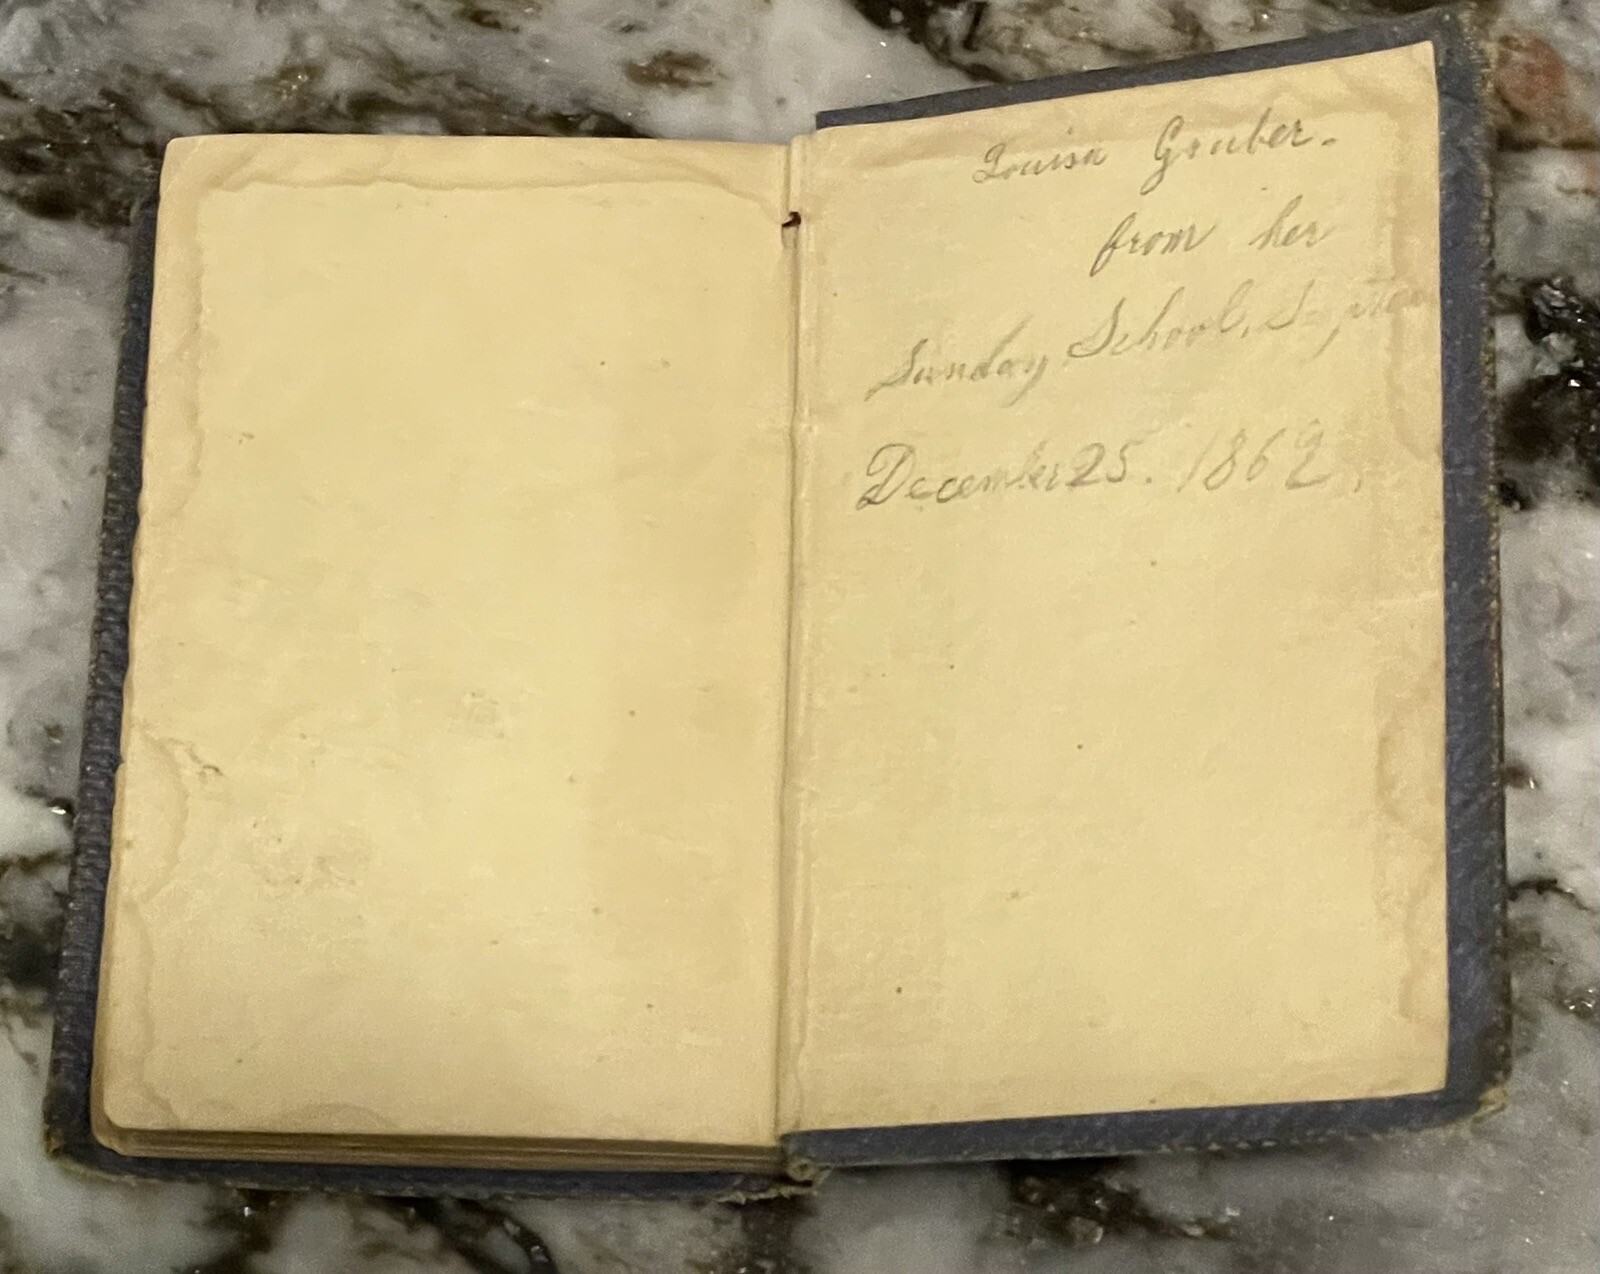 Louisa Gruber.
from her
Sunday School,
December 25. 1862.